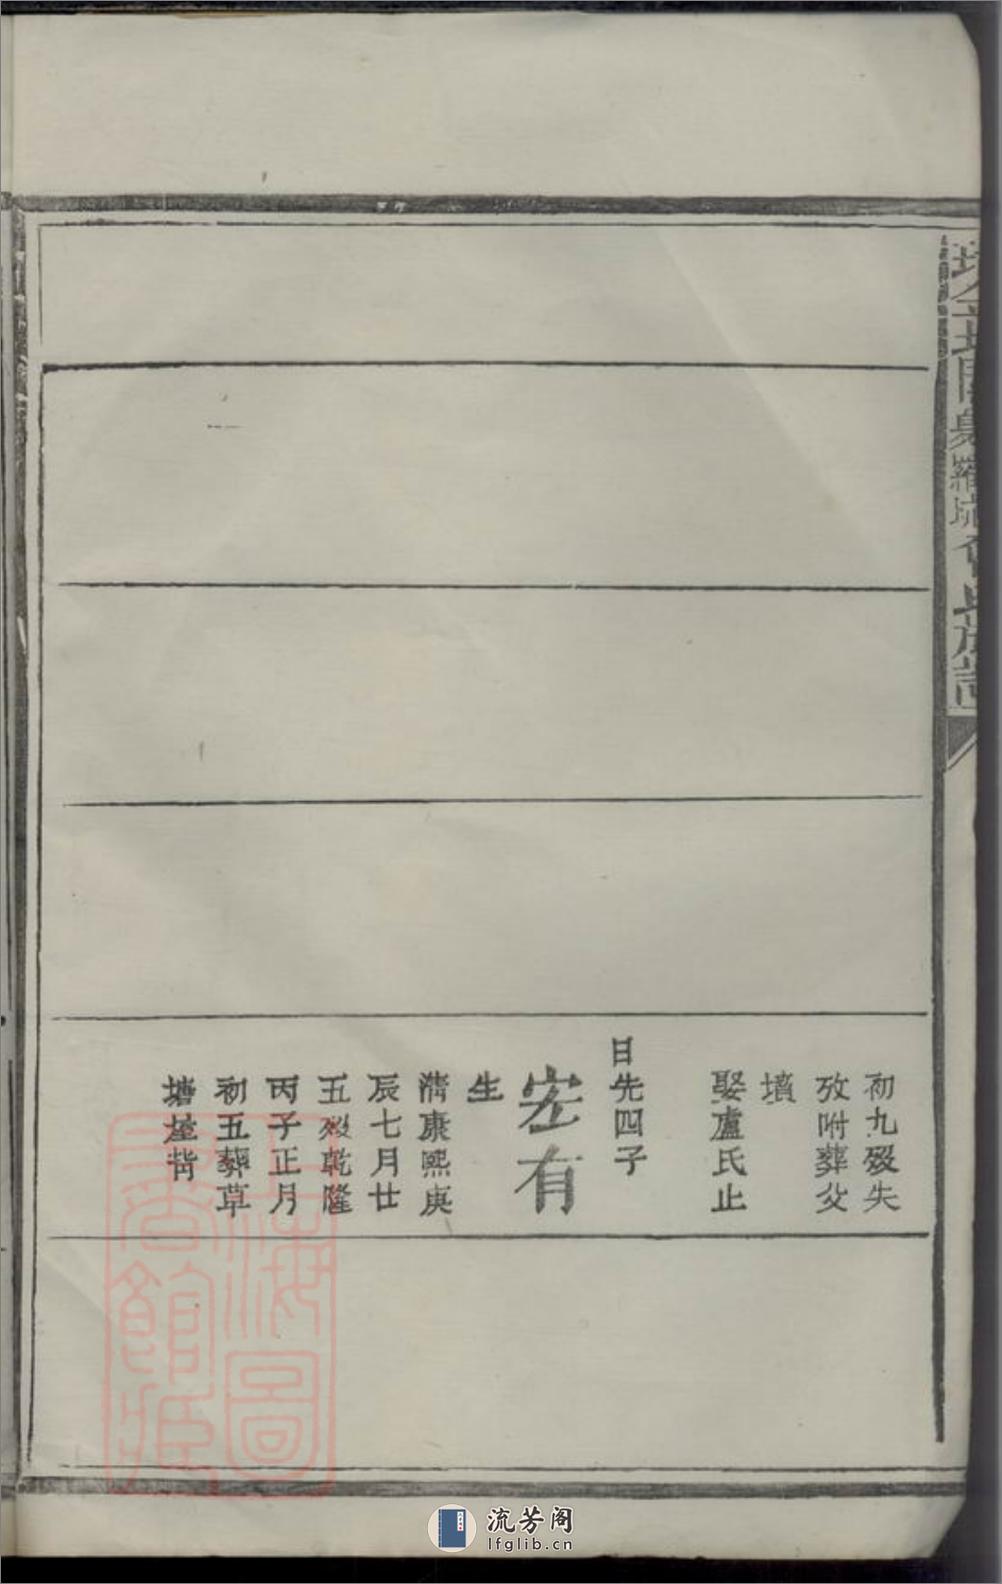 初九殁失
攷附葬父
墳
娶盧氏止
日先四子
宏有
生
清康熙庚
辰七月廿
五殁乾隆
丙子正月
初五葬草
塘屋背
上海圖
書館藏
流芳阁
lfglib.cn